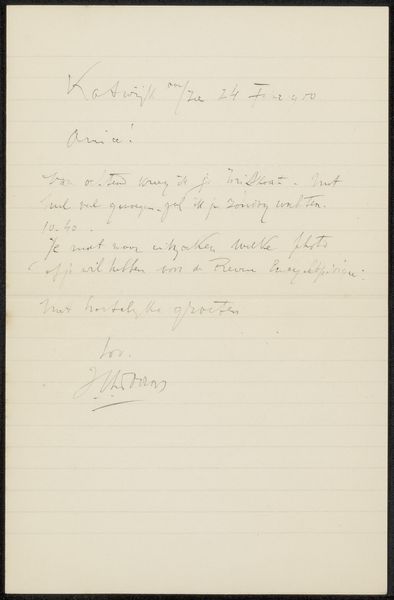 Katwijk aan/Zee 24 Febr 900
Amice!
Van ochtend kreeg ik je briefkaart. Met
heel veel genoegen zal ik je zondag wachten.
10.40.
Je moet maar uitzoeken welke photo
je wil hebben voor de Revue
Met hartelijke groeten